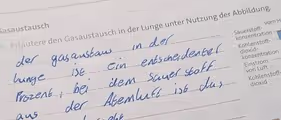 Gasaustausch
Erläutere den Gasaustausch in der Lunge unter Nutzung der Abbildung.
der gasaustaus in der
Lunge ist ein entscheidender
Prozent, bei dem Sauerstoff
aus der Atemluft ist das
Sauerstoff-
konzentration
Kohlenstoff-
dioxid-
konzentration
Einströmen
von Luft
Kohlenstoff-
dioxid